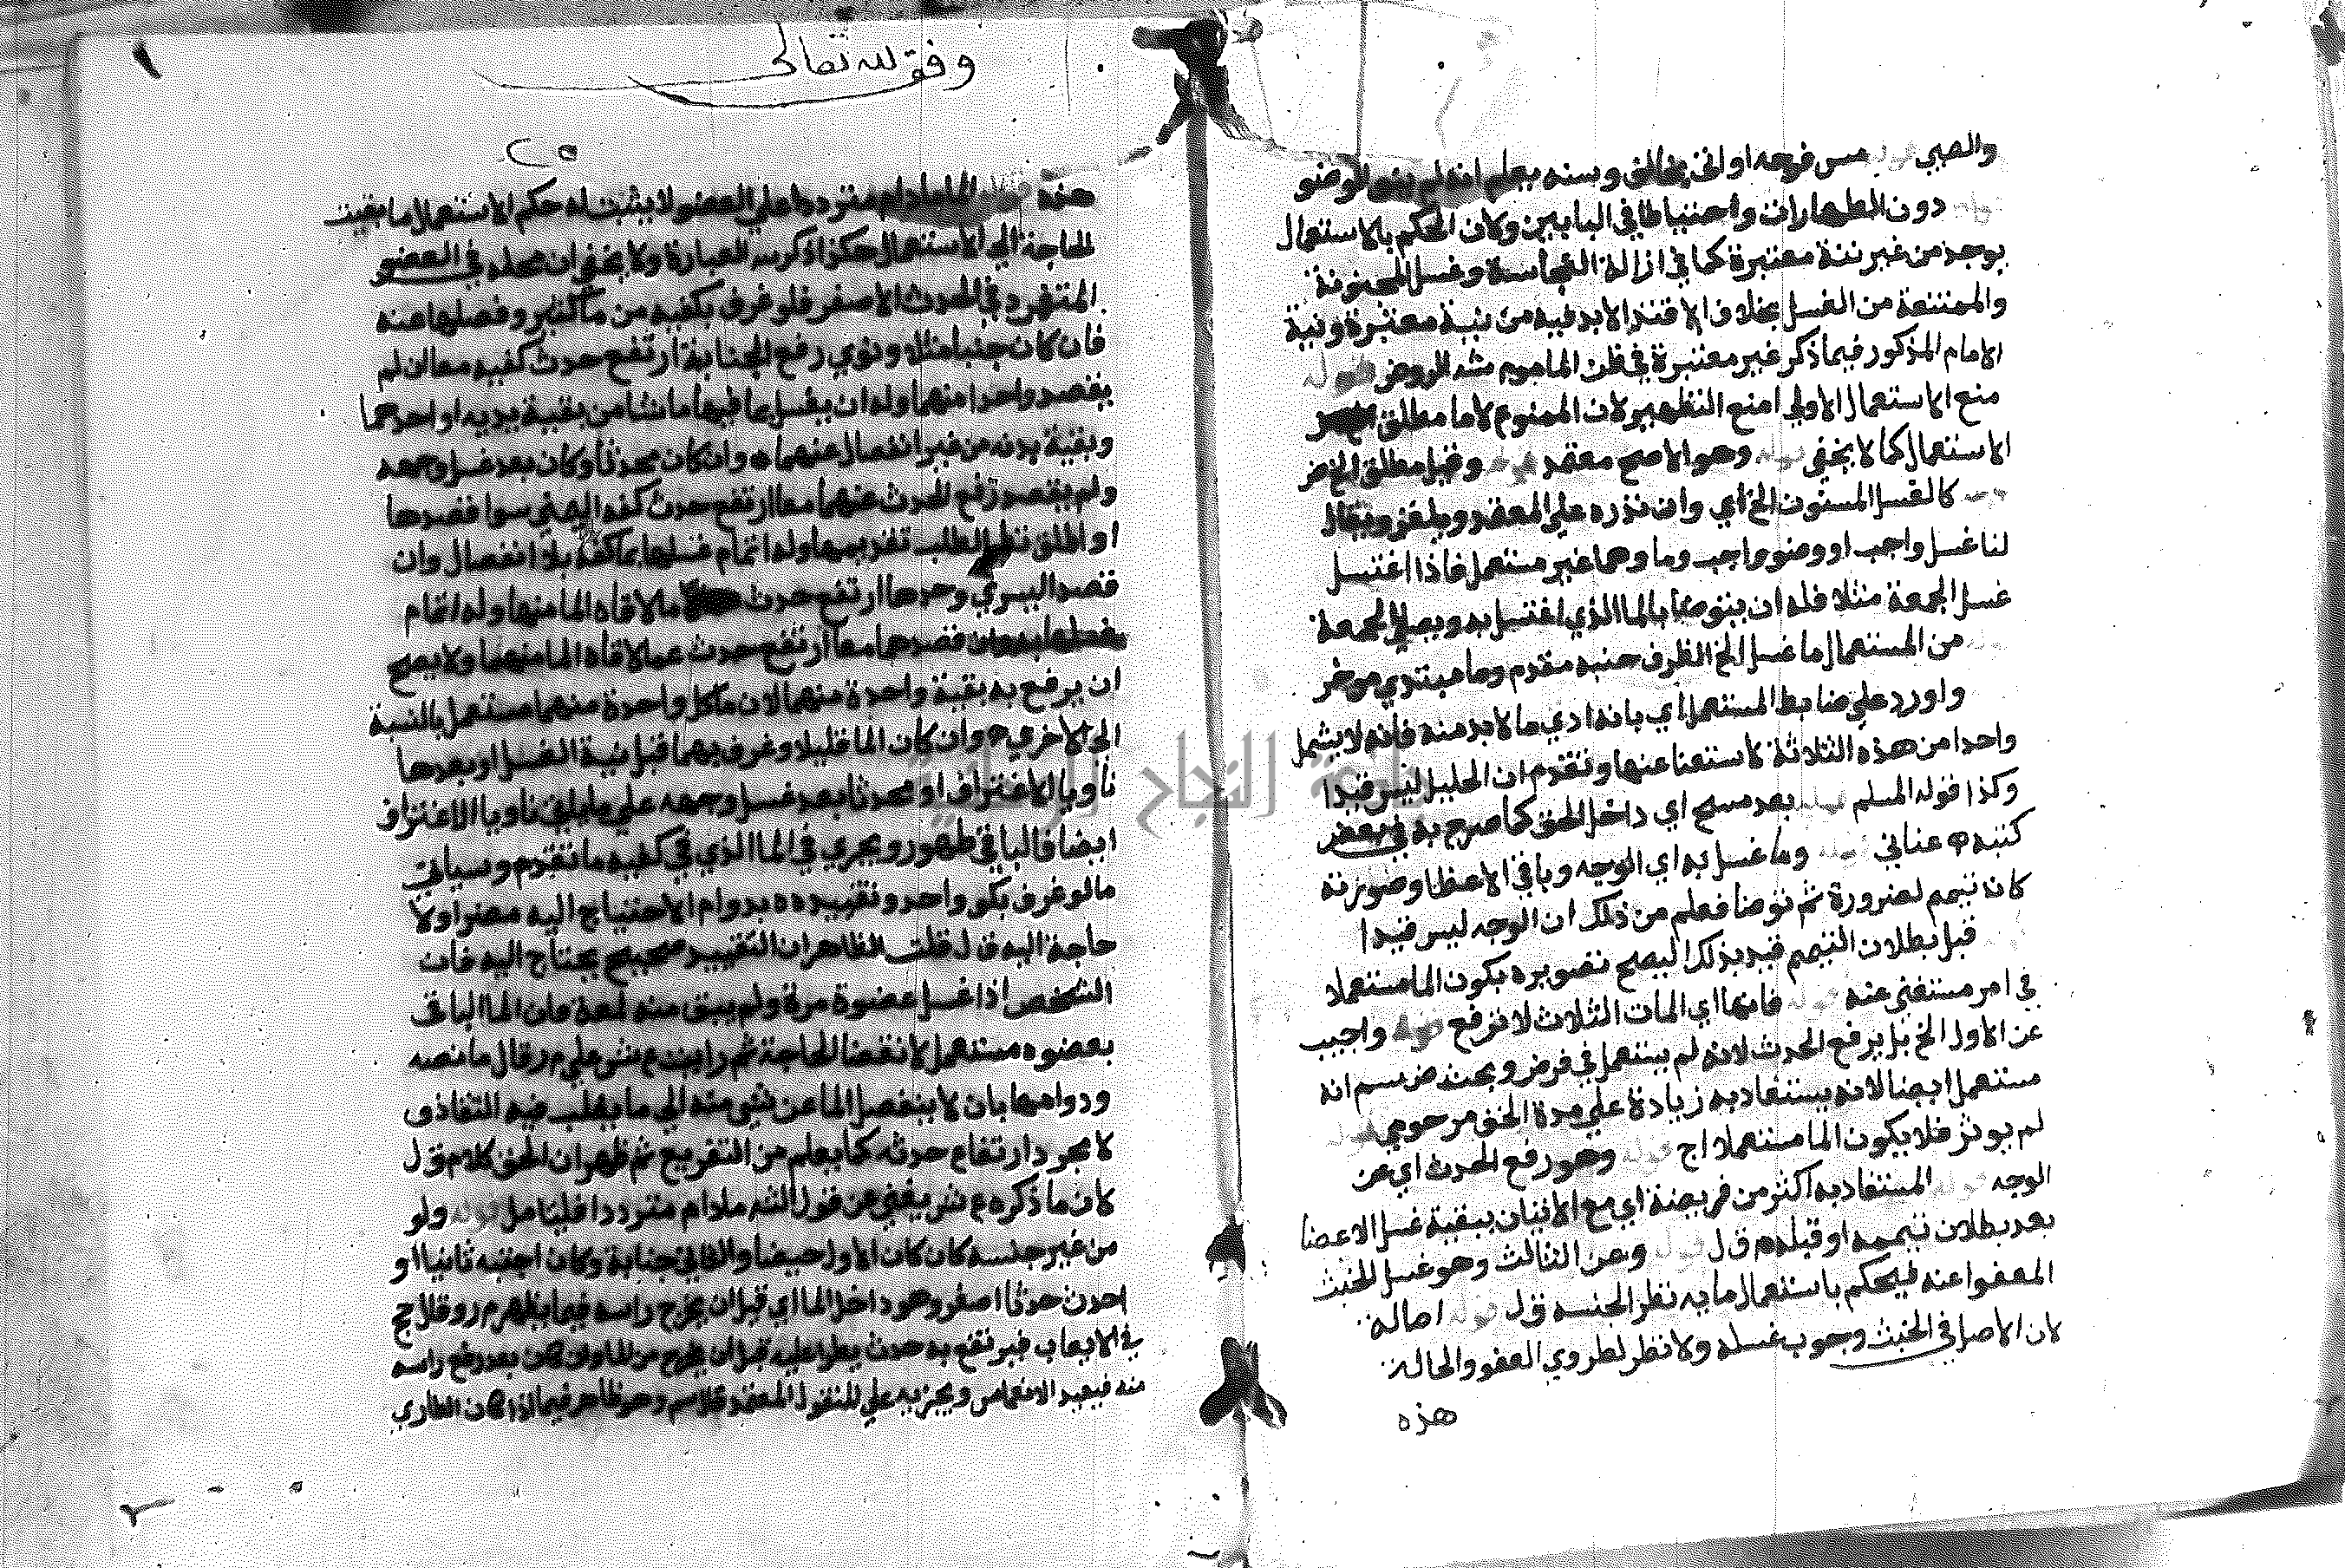 والصبي قوله مس فرجه او لنحو مخالف وسنه يعلم انه لم ينو الوضو
قوله دون الطهارات واحتياطا في البابين وكان الحكم بالاستعمال
يوجد من غير نية معتبرة كما في ازالة النجاسة وغسل المجنونة
والممتنعة من الغسل بخلاف الاقتدا لا بد فيه من نية معتبرة ونية
الامام المذكور فيما ذكر غير معتبرة في ظن الماموم شه الروض قوله
منع الاستعمال الاولي امنع التطهير لان الممنوع لاما مطلق
الاستعمال كما لا يخفى قوله وهو الاصح معتمد قوله وقيل مطلق الخ خضر
قوله كالغسل المسنون الخ اي وان نذره علي المعتمد ويلغز ويقال
لنا غسل واجب او وضو واجب وما وهما غير مستعمل فاذا اغتسل
غسل الجمعة مثلا فله ان يتوضا بالما الذي اغتسل به ويصلي الجمعة
قوله من المستعمل ما غسل الخ الظرف خبر مقدم وما مبتدي موخر
واورد علي ضابط المستعمل اي بانه ادي ما لا بد منه فانه لا يشمل
واحدا من هذه الثلاثة لاستغنا عنها وتقدم ان الحليل ليس قيدا
وكذا قوله المسلم قوله بعد مسح اي داخل الخف كما صرح به في بعض
كتبه ه عناني قوله وما غسل به اي الوجه وباقي الاعضا وصورته
كان تيمم لضرورة ثم توضا فعلم من ذلك ان الوجه ليس قيدا
قبل بطلان التيمم قيد بذلك ليصح تصويره بكون الما مستعملا
في امر مستغني عنه قوله فانها اي المات الثلاث لا ترفع قوله واجيب
عن الاول الخ بل يرفع الحدث لانه لم يستعمل في فرض وبحث سم انه
مستعمل ايضا لانه يستفاد به زيادة علي مدة الخف مرحومي قوله
لم يوثر فلا يكون الما مستعملا اج قوله وهو رفع الحدث اي عن
الوجه قوله المستفاد به اكثر من فريضة اي مع الاتيان ببقية غسل الاعضا
بعد بطلان تيممه او قبله م ق ل قوله وعن الثالث وهو غسل الخبث
المعفوا عنه فيحكم باستعمال مايه نظر الجنسه ق ل قوله اصالة
لان الاصل في الخبث وجوب غسله ولا نظر لطروي العفو والحالة
هذه
وقف لله تعالى
٢٥
هذه قوله الما مادام مترددا علي العضو لا يثبت له حكم الاستعمال ما بقيت
الحاجة الي الاستعمال هكذا ذكر العبارة ولا يخفي ان محله في العضو
المتفرد في الحدث الاصغر فلو غرف بكفيه من ما كثير وفصلها عنه
فان كان جنبا مثلا ونوي رفع الجنابة ارتفع حدث كفيه معا ان لم
يقصد واحدا منهما وله ان يغسل بما فيها ما شا من بقية يديه او احدهما
وبقية بدنه من غير انفصال عنهما ه وان كان محدثا وكان بعد غسل وجهه
ولم يقصد رفع الحدث عنهما معا ارتفع حدث كفه اليمني سوا قصدها
او اطلق نظر الطلب تقديمها وله اتمام غسلها بما كفه بلا انفصال وان
قصد اليسري وحدها ارتفع حدث ما لاقاه الما منها وله اتمام
غسلها به وان قصدهما معا ارتفع حدث عما لاقاه الما منهما ولا يصح
ان يرفع به بقية واحدة منهما لان ما كل واحدة منهما مستعمل بالنسبة
الي الاخري ه وان كان الما قليلا وغرف بهما قبل نية الغسل او بعدها
ناويا الاغتراف او محدثا بعد غسل وجهه علي ما ياتي ناويا الاغتراف
ايضا فالباقي طهور ويجري في الما الذي في كفيه ما تقدم وسياتي
ما لو غرف بكف واحد وتقييده ه بدوام الاحتياج اليه مضر او لا
حاجة اليه ق ل قلت الظاهر ان التقييد صحيح يحتاج اليه فان
الشخص اذا غسل عضوه مرة ولم يبق منه لمعة فان الما الباقي
بعضوه مستعمل لانقضا الحاجة ثم رايت ع ش علي م ر قال ما نصه
ودوامها بان لا ينفصل الما عن شي منه الي ما يغلب فيه التقاذف
لا بمجرد ارتفاع حدثه كما يعلم من التفريع ثم ظهر ان الحق كلام ق ل
لان ما ذكره ع ش يغني عن قول الشه مادام مترددا فليتامل قوله ولو
من غير جنسه كان كان الاول حيضا والثاني جنابة وكان اجنبه ثانيا او
احدث حدثا اصغر وهو داخل الما اي قبل ان يخرج راسه فيما يظهر م ر وقال حج
في الايعاب فيرتفع به حدث يطرا عليه قبل ان يخرج من الما ولو كان بعد رفع راسه
منه فيعيد الانغماس ويجزيه علي المنقول المعتمد وهو ظاهر فيما اذا كان الطاري